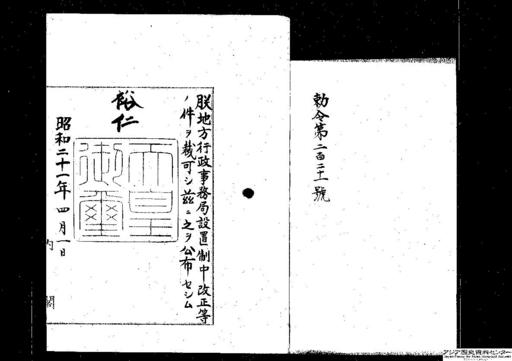 勅令第二百二十一號
朕地方行政事務局設置制中改正等
ノ件ヲ裁可シ茲ニ之ヲ公布セシム
裕仁
天皇御璽
昭和二十一年四月一日
内閣
アジア歴史資料センター